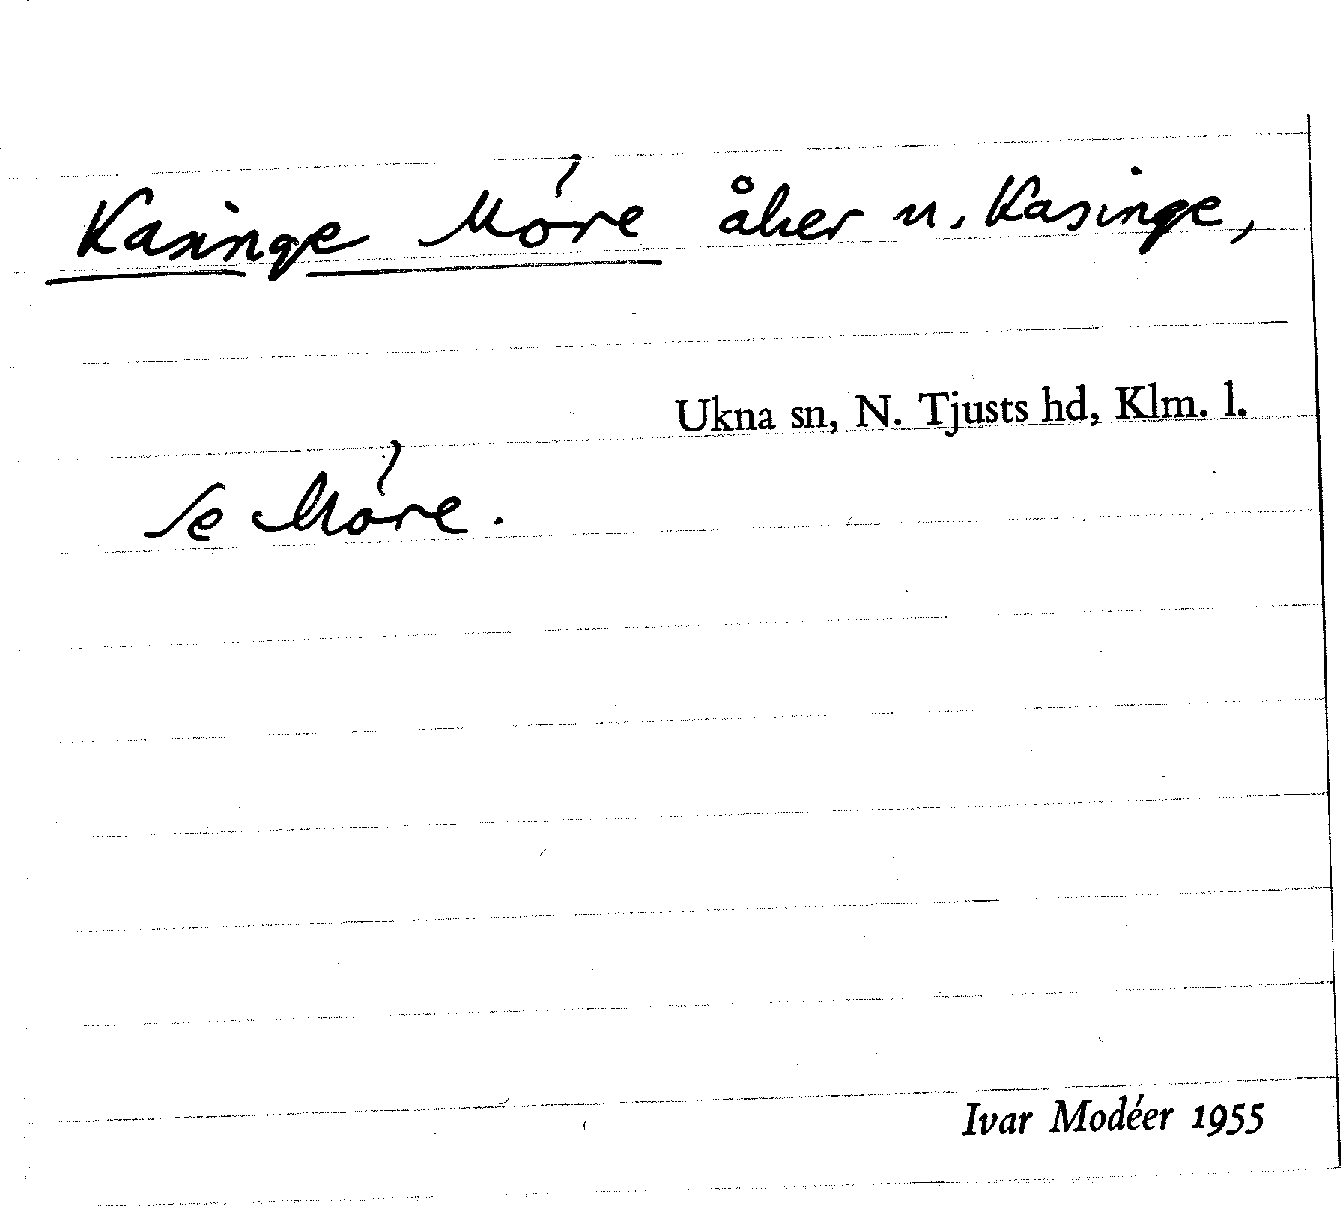 Kasinge Möre åker u. Kasinge,
Ukna sn, N. Tjusts hd, Klm. l.
Se Möre.
Ivar Modéer 1955